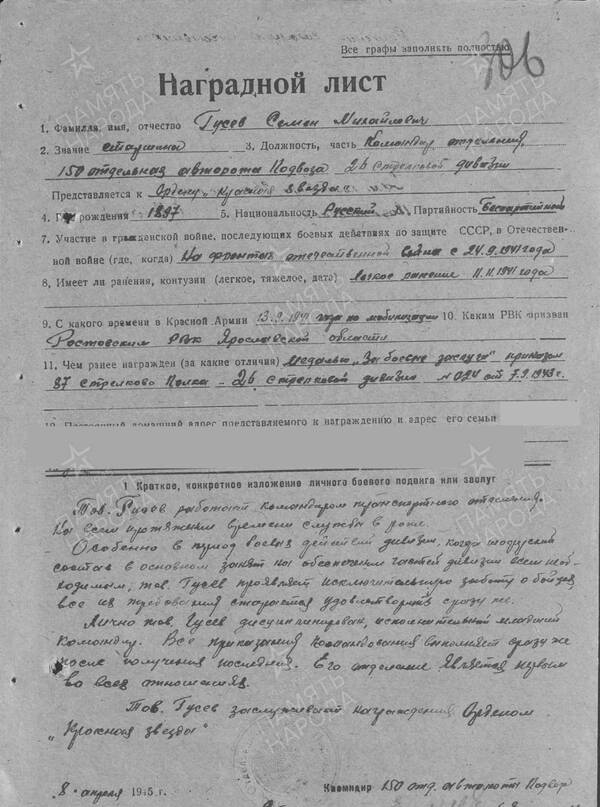 Все графы заполнять полностью
106
Наградной лист
1. Фамилия, имя, отчество Гусев Семен Михайлович
2. Звание старшина 3. Должность, часть Командир отделения,
150 отдельная авторота Подвоза 26 стрелковой дивизии
Представляется к Ордену „Красная звезда"
4. Год рождения 1897 5. Национальность Русский 6. Партийность Беспартийный
7. Участие в гражданской войне, последующих боевых действиях по защите СССР, в Отечествен-
ной войне (где, когда) На фронтах отечественной войны с 24.9.1941 года
8. Имеет ли ранения, контузии (легкое, тяжелое, дата) легкое ранение 11.11.1941 года
9. С какого времени в Красной Армии 13.9.1941 года по мобилизации 10. Каким РВК призван
Ростовским РВК Ярославской области
11. Чем ранее награжден (за какие отличия) Медалью „За боевые заслуги" приказом
87 Стрелкового Полка - 26 стрелковой дивизии № 024 от 7.9.1943 г.
12. Постоянный домашний адрес представляемого к награждению и адрес его семьи
1 Краткое, конкретное изложение личного боевого подвига или заслуг
Тов. Гусев работает командиром транспортного отделения.
На всем протяжении времени службы в роте.
Особенно в период боевых действий дивизии, когда
состав в основном занят на обеспечении частей дивизии всем необ-
ходимым, тов. Гусев проявляет исключительную заботу о бойцах
все их требования старается удовлетворить сразу же.
Лично тов. Гусев дисциплинирован, исполнительный младший
Командир. Все приказания Командования выполняет сразу же
после получения последних. Его отделение является первым
во всех отношениях.
Тов. Гусев заслуживает награждения Орденом
„Красная звезда"
8 апреля 1945 г. Командир 150 отд. автороты Подвоза
ПАМЯТЬ НАРОДА